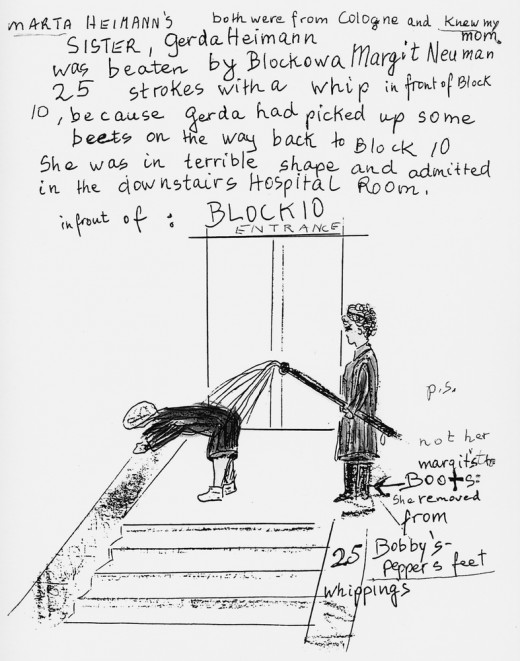 MARTA HEIMANN'S both were from Cologne and knew my mom.
SISTER, Gerda Heimann
was beaten by Blockowa Margit Neuman
25 strokes with a whip in front of Block
10, because Gerda had picked up some
beets on the way back to Block 10
She was in terrible shape and admitted
in the downstairs Hospital Room.
in front of : BLOCK 10
ENTRANCE
p.s.
not her
margit's
Boots:
She removed
from
Bobby's-
Pepper's feet
25
whippings